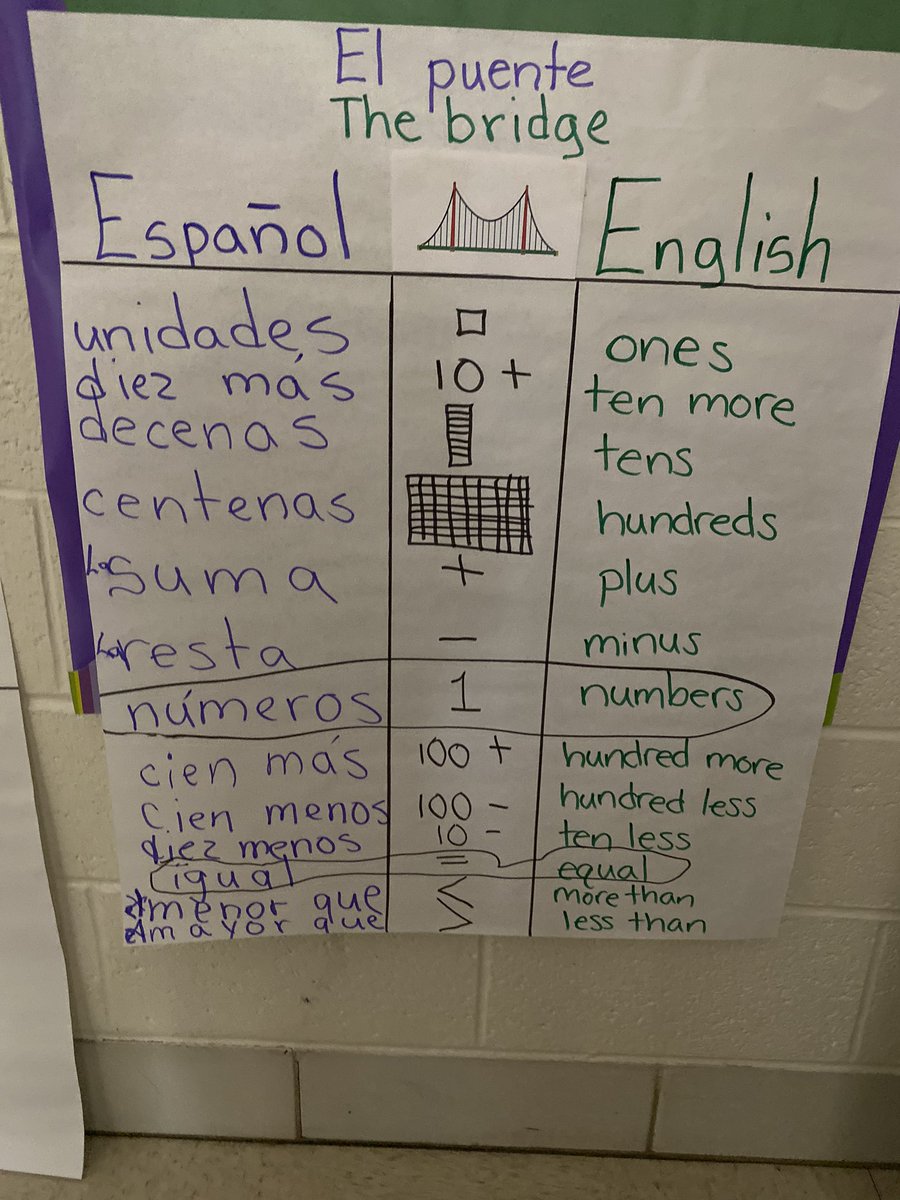 El puente
The bridge
Español English
unidades ones
diez más 10 + ten more
decenas tens
centenas hundreds
La suma + plus
La resta − minus
números 1 numbers
cien más 100 + hundred more
cien menos 100 − hundred less
diez menos 10 − ten less
igual = equal
menor que < more than
mayor que > less than